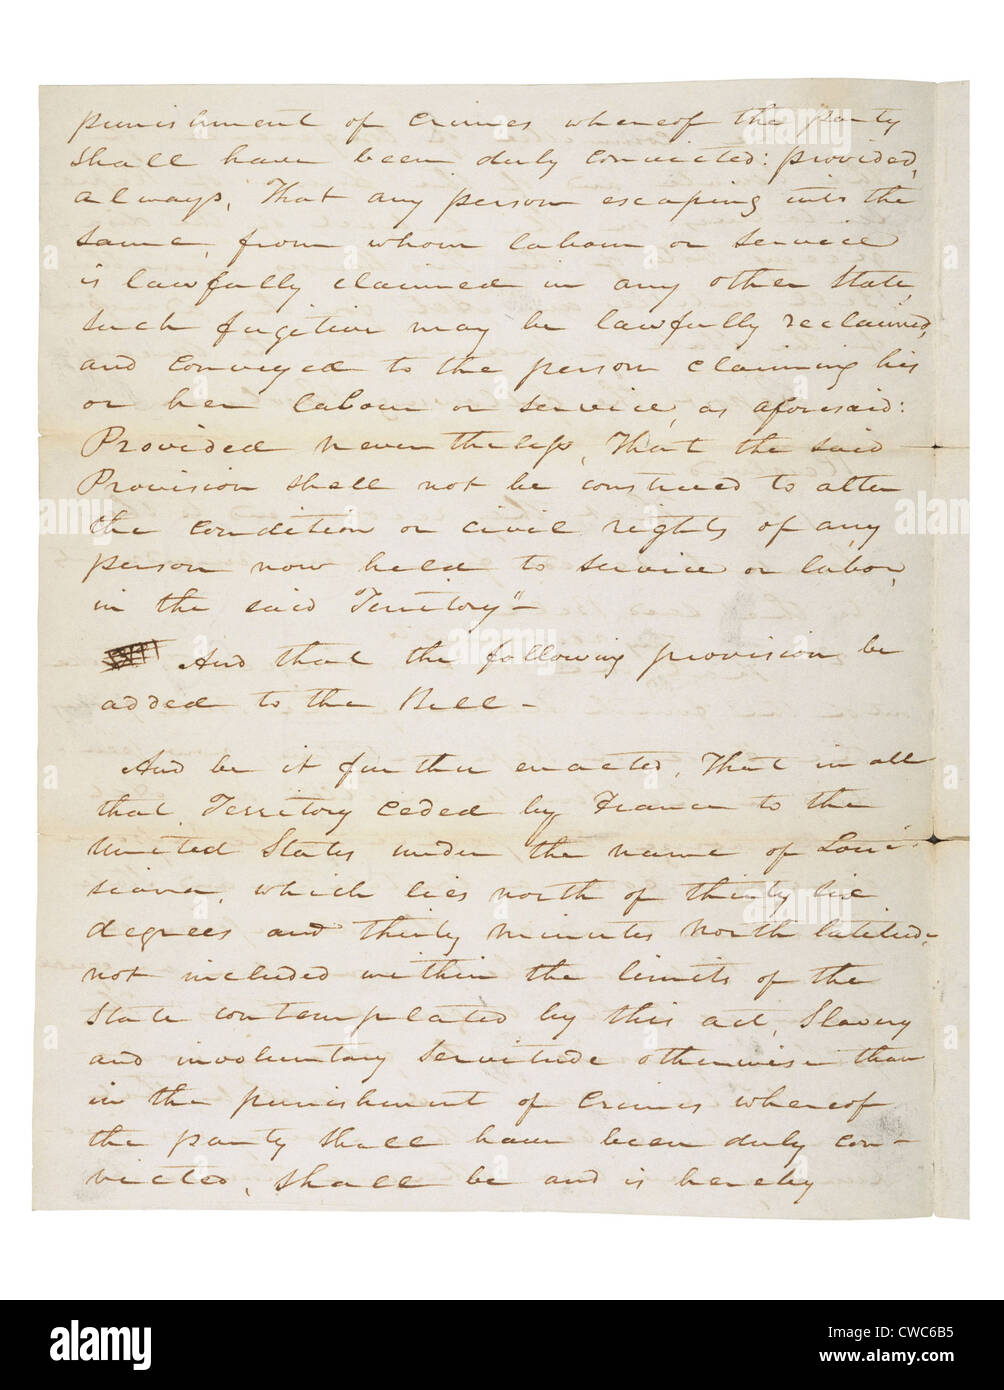 punishment of crimes whereof the party
shall have been duly convicted: provided,
always, That any person escaping into the
same, from whom labour or service
is lawfully claimed in any other State,
such fugitive may be lawfully reclaimed,
and conveyed to the person claiming his
or her labour or service, as aforesaid:
Provided nevertheless, That the said
Provision shall not be construed to alter
the condition or civil rights of any
person now held to service or labor,
in the said Territory" -
And that the following provision be
added to the Bill -
And be it further enacted, That in all
that Territory ceded by France to the
United States under the name of Loui-
siana, which lies north of thirty six
degrees and thirty minutes North latitude
not included within the limits of the
State contemplated by this act, Slavery
and involuntary servitude otherwise than
in the punishment of crimes whereof
the party shall have been duly con-
victed, shall be and is hereby
alamy
a
Image ID: CWC6B5
www.alamy.com